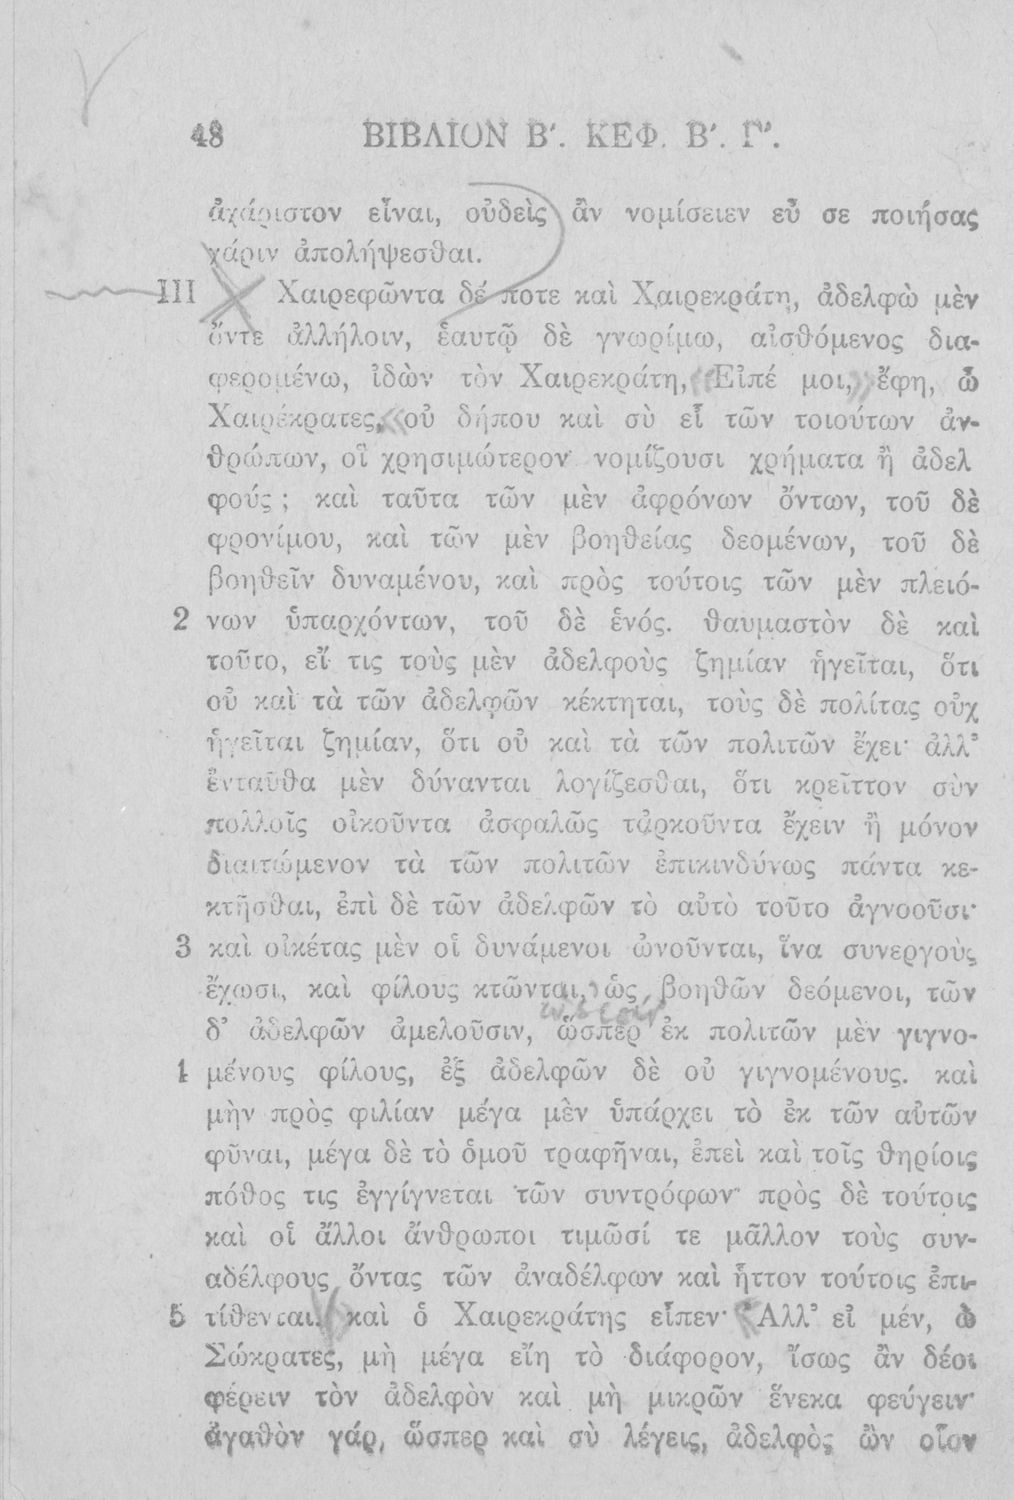 48 ΒΙΒΛΙΟΝ Β′. ΚΕΦ. Β′. Γ′.
ἀχάριστον εἶναι, οὐδεὶς ἂν νομίσειεν εὖ σε ποιήσας
χάριν ἀπολήψεσθαι.
III Χαιρεφῶντα δέ ποτε καὶ Χαιρεκράτη, ἀδελφὼ μὲν
ὄντε ἀλλήλοιν, ἑαυτῷ δὲ γνωρίμω, αἰσθόμενος δια-
φερομένω, ἰδὼν τὸν Χαιρεκράτη, Εἰπέ μοι, ἔφη, ὦ
Χαιρέκρατες, οὐ δήπου καὶ σὺ εἶ τῶν τοιούτων ἀν-
θρώπων, οἳ χρησιμώτερον νομίζουσι χρήματα ἢ ἀδελ
φούς ; καὶ ταῦτα τῶν μὲν ἀφρόνων ὄντων, τοῦ δὲ
φρονίμου, καὶ τῶν μὲν βοηθείας δεομένων, τοῦ δὲ
βοηθεῖν δυναμένου, καὶ πρὸς τούτοις τῶν μὲν πλειό-
2 νων ὑπαρχόντων, τοῦ δὲ ἑνός. θαυμαστὸν δὲ καὶ
τοῦτο, εἴ τις τοὺς μὲν ἀδελφοὺς ζημίαν ἡγεῖται, ὅτι
οὐ καὶ τὰ τῶν ἀδελφῶν κέκτηται, τοὺς δὲ πολίτας οὐχ
ἡγεῖται ζημίαν, ὅτι οὐ καὶ τὰ τῶν πολιτῶν ἔχει· ἀλλ’
ἐνταῦθα μὲν δύνανται λογίζεσθαι, ὅτι κρεῖττον σὺν
πολλοῖς οἰκοῦντα ἀσφαλῶς τἀρκοῦντα ἔχειν ἢ μόνον
διαιτώμενον τὰ τῶν πολιτῶν ἐπικινδύνως πάντα κε-
κτῆσθαι, ἐπὶ δὲ τῶν ἀδελφῶν τὸ αὐτὸ τοῦτο ἀγνοοῦσι·
3 καὶ οἰκέτας μὲν οἱ δυνάμενοι ὠνοῦνται, ἵνα συνεργοὺς
ἔχωσι, καὶ φίλους κτῶνται, ὡς βοηθῶν δεόμενοι, τῶν
δ’ ἀδελφῶν ἀμελοῦσιν, ὥσπερ ἐκ πολιτῶν μὲν γιγνο-
4 μένους φίλους, ἐξ ἀδελφῶν δὲ οὐ γιγνομένους. καὶ
μὴν πρὸς φιλίαν μέγα μὲν ὑπάρχει τὸ ἐκ τῶν αὐτῶν
φῦναι, μέγα δὲ τὸ ὁμοῦ τραφῆναι, ἐπεὶ καὶ τοῖς θηρίοις
πόθος τις ἐγγίγνεται τῶν συντρόφων· πρὸς δὲ τούτοις
καὶ οἱ ἄλλοι ἄνθρωποι τιμῶσί τε μᾶλλον τοὺς συν-
αδέλφους ὄντας τῶν ἀναδέλφων καὶ ἧττον τούτοις ἐπι-
5 τίθενται. καὶ ὁ Χαιρεκράτης εἶπεν· Ἀλλ’ εἰ μέν, ὦ
Σώκρατες, μὴ μέγα εἴη τὸ διάφορον, ἴσως ἂν δέοι
φέρειν τὸν ἀδελφὸν καὶ μὴ μικρῶν ἕνεκα φεύγειν·
ἀγαθὸν γάρ, ὥσπερ καὶ σὺ λέγεις, ἀδελφὸς ὢν οἷον